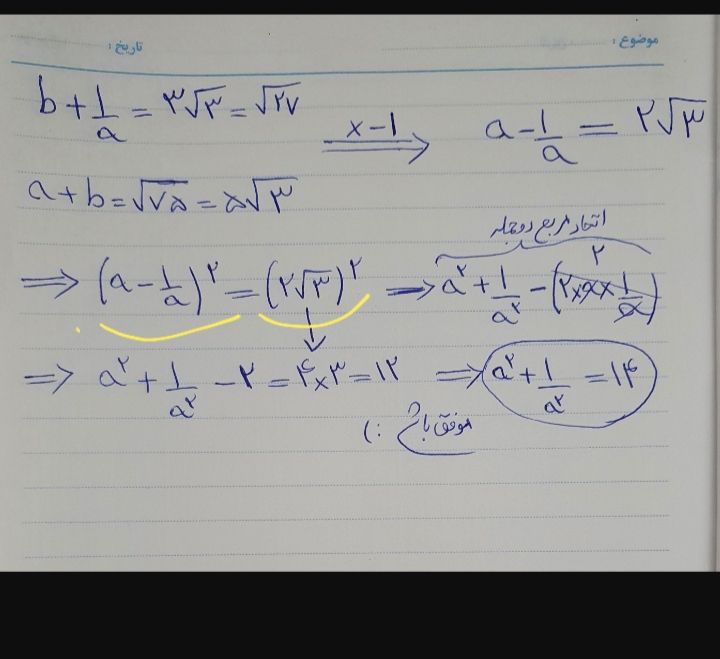 موضوع : تاریخ :
b + 1/a = ۳√۳ = √۲۷
×-۱ ⟹ a - 1/a = ۲√۳
a + b = √۷۵ = ۵√۳
اتحاد مربع دو جمله
⟹ (a - 1/a)^۲ = (۲√۳)^۲ ⟹ a^۲ + 1/a^۲ - (۲×a×1/a) ۲
⟹ a^۲ + 1/a^۲ - ۲ = ۴×۳ = ۱۲ ⟹ a^۲ + 1/a^۲ = ۱۴
موفق باشی :)